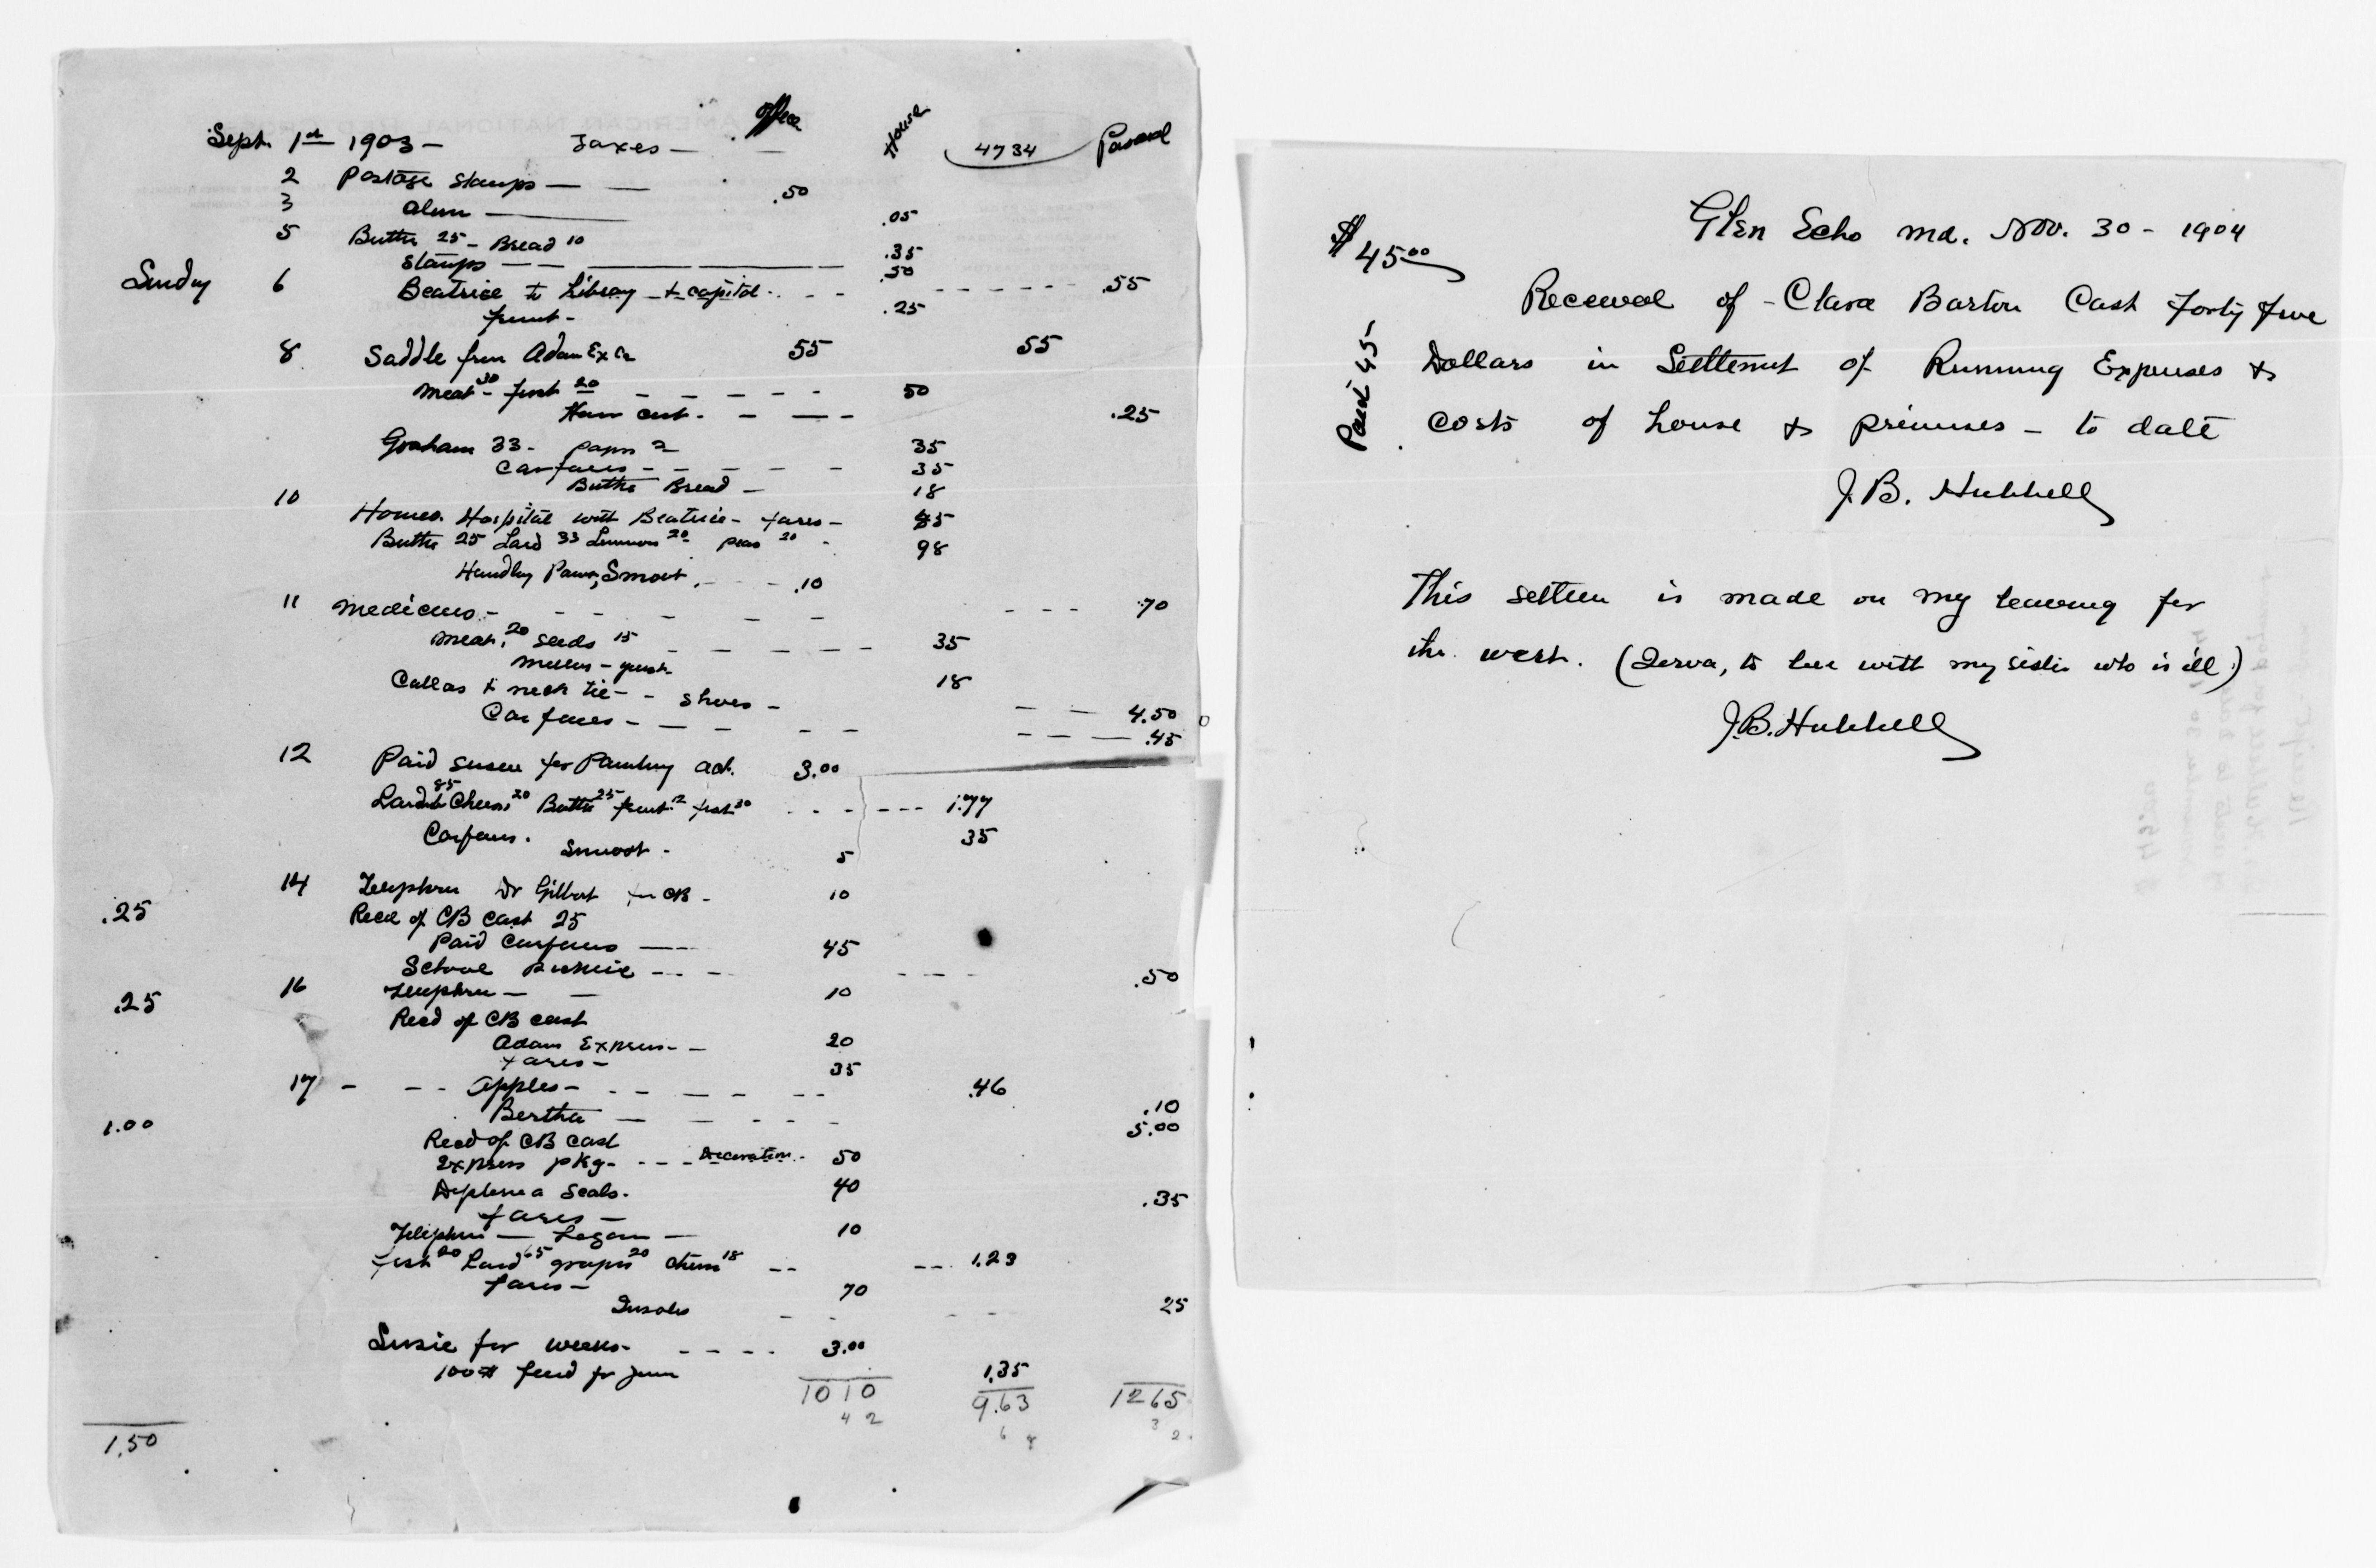 office House 4734
Sept. 1st 1903 - Taxes -
2 Postage Stamps - .50
3 Alum .05
5 Butter 25 - Bread 10 .35
Stamps .50
Sunday 6 Beatrice to Library & capitol - .55
fruit - .25
8 Saddle from Adam Ex Co 55 55
Meat 30 - fruit 20 50
Hair cut - .25
Graham 33 - paper 2 35
Carfares - 35
Butter Bread - 18
10 Homeo. Hospital with Beatrice - fares - 45
Butter 25 Lard 33 Lemons 20 pears 20 - 98
Handling Smoot .10
11 Medicines - 70
Meat 20 Seeds 15 35
18
Collars & neck tie - - Shoes - 4.50
Car fares - .45
12 Paid Susie for 3.00
Lard 85 Cheese 20 Butter 25 fruit 12 fish 30 1.77
Carfares. 35
Smoot - 5
14 Telephone Dr Gilbert for CB - 10
.25 Recd of CB Cash 25
Paid Carfares 45
School picnic - .50
16 Telephone - 10
.25 Recd of CB cash
Adam Express - 20
fares - 35
17 - Apples - .46
.10
Bertha 5.00
1.00 Recd of CB cash
Express pkg - Decoration - 50
Diploma Seals. 40
fares - .35
Telephone - Logan - 10
fish 20 Lard 65 grapes 20 cheese 18 1.23
fares - 70
25
Susie for weeks - 3.00
100# feed for 1.35
1010 9.63 1265
4 2 6 8 3 2
1.50
Glen Echo Md. Nov. 30 - 1904
$45.00
Received of - Clara Barton Cash forty five
Dollars in Settlement of Running Expenses &
costs of house & premises - to date
Paid 45
J.B. Hubbell
This is made on my leaving for
the west. (Iowa, to be with my sister who is ill.)
J.B. Hubbell